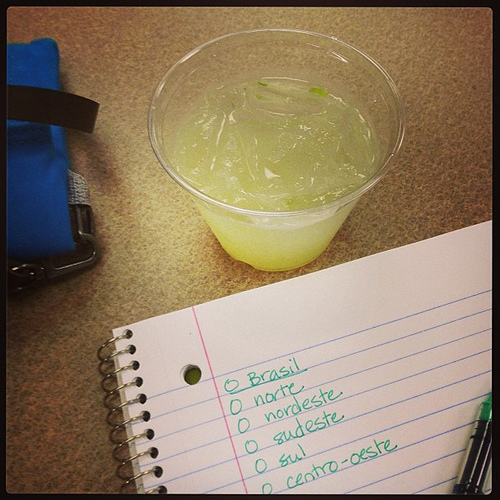 O Brasil
O norte
O nordeste
O sudeste
O sul
O centro-oeste